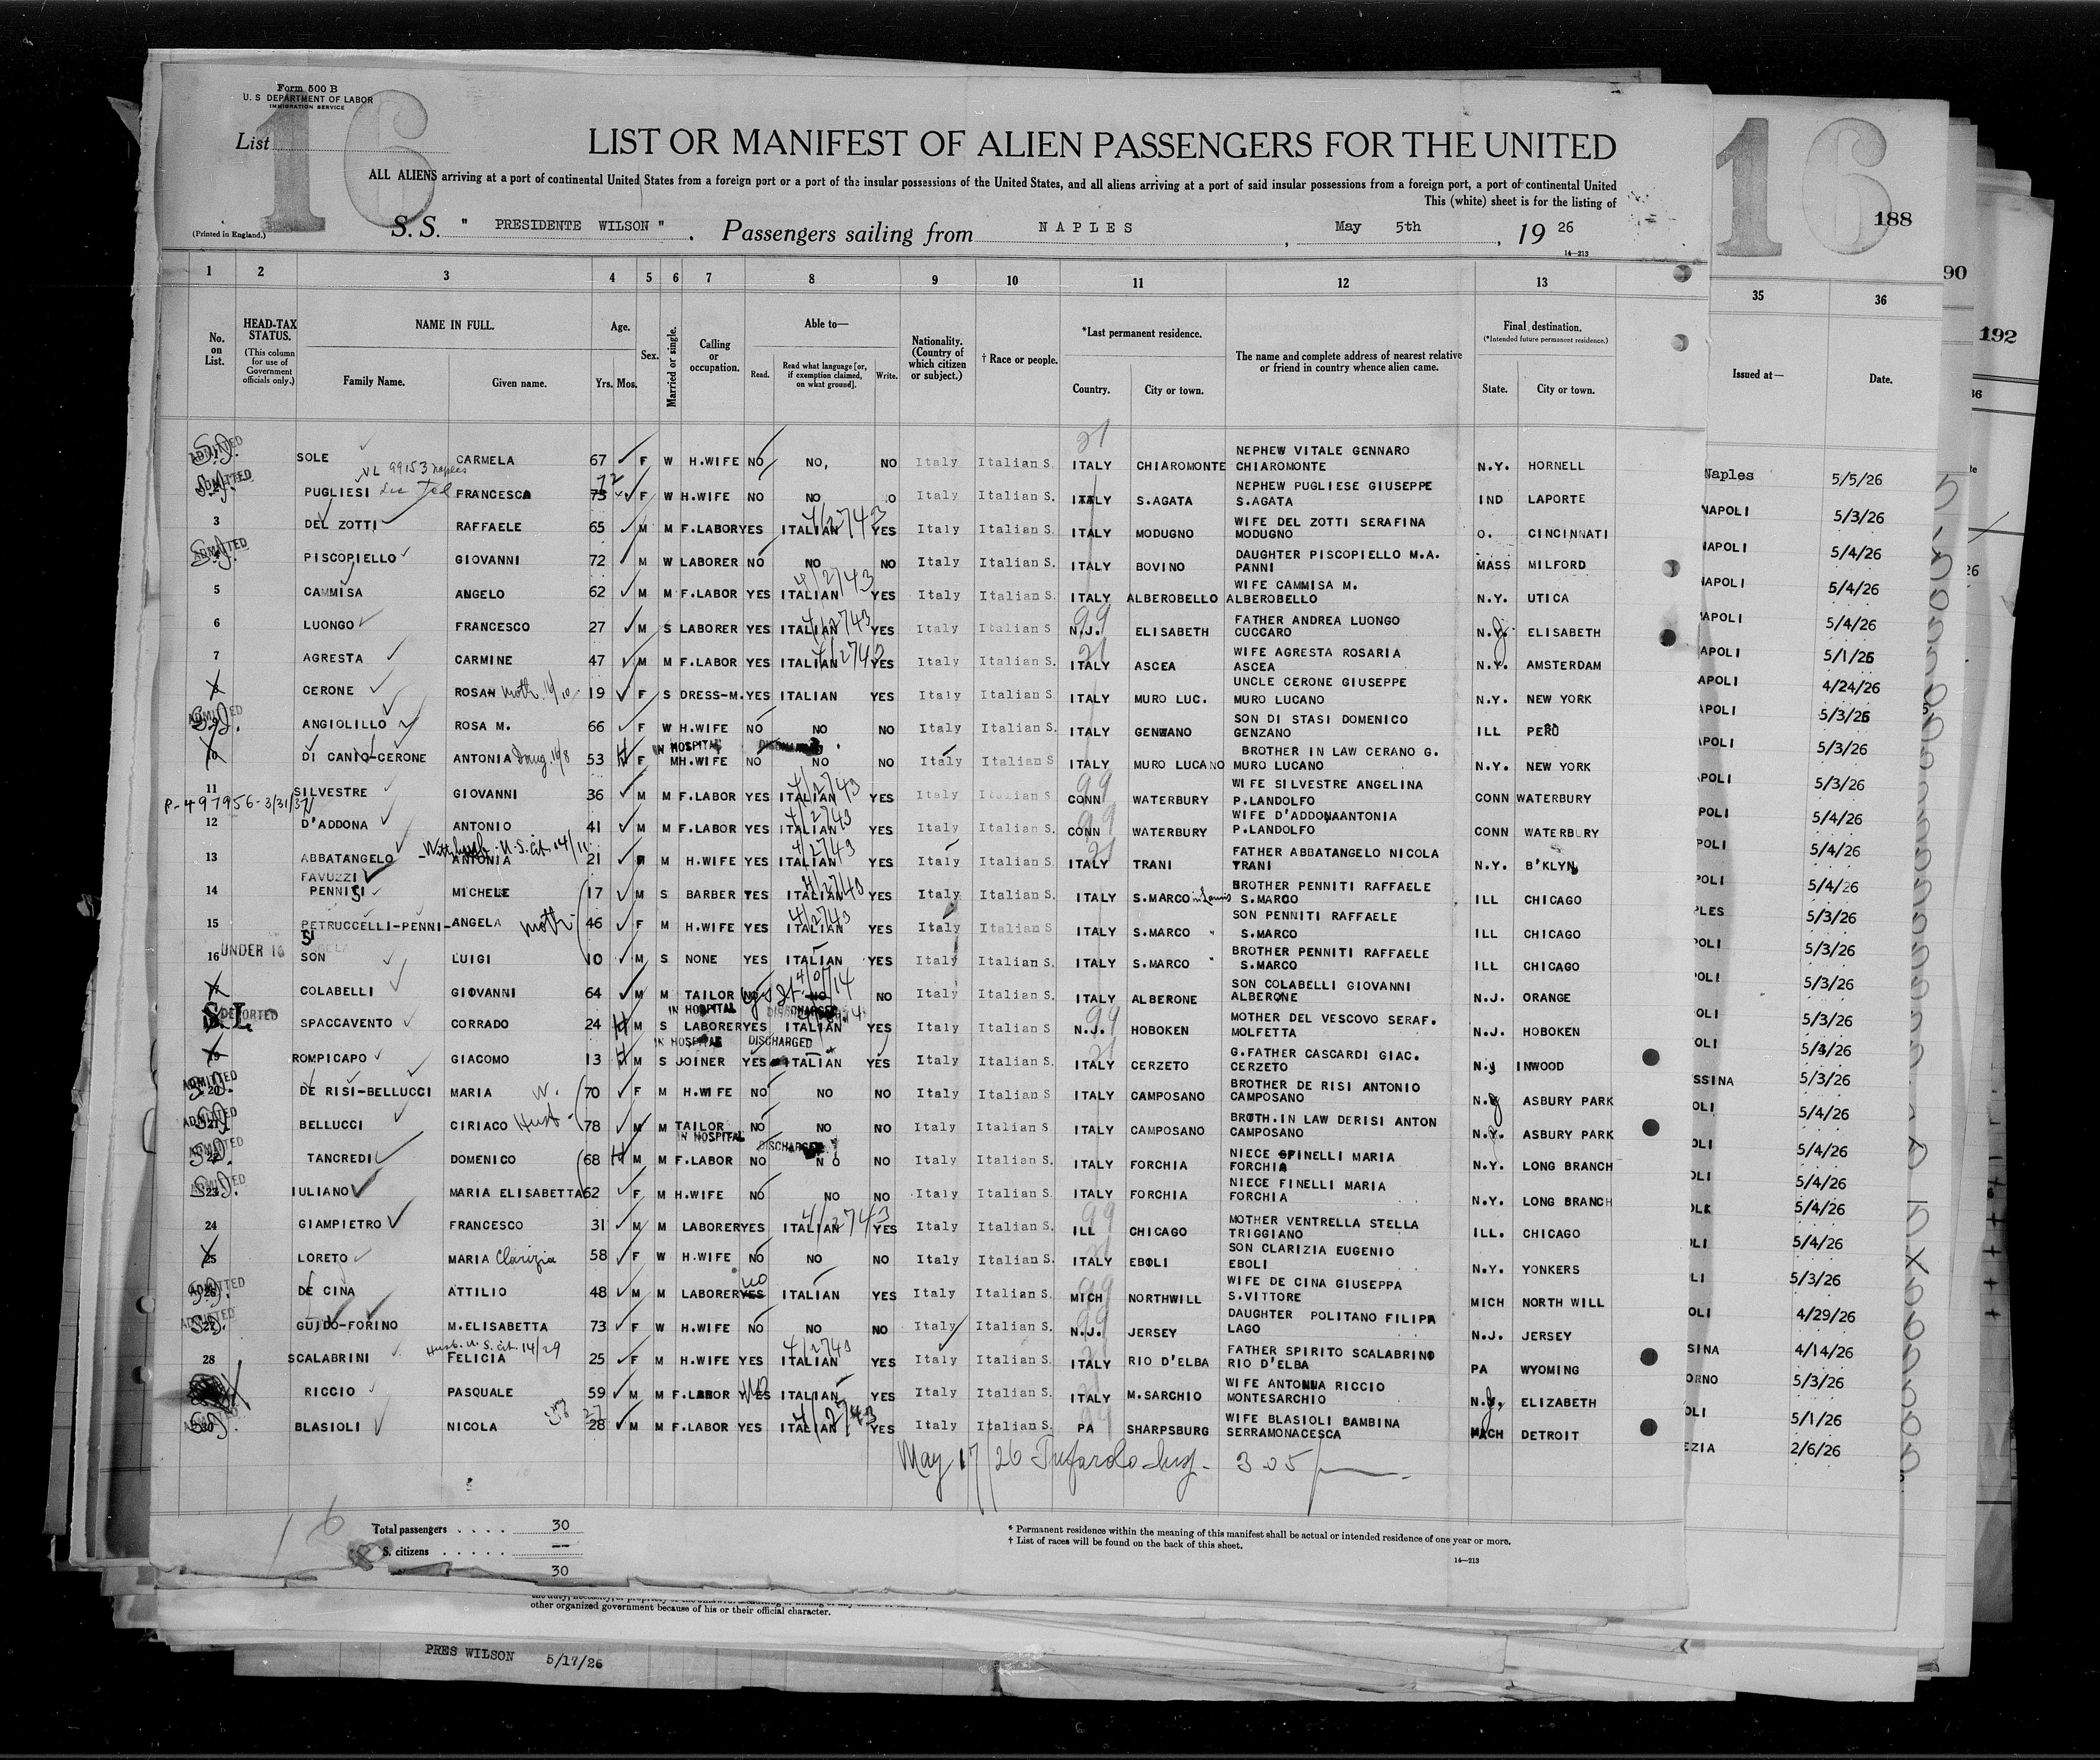 Form 500 B
U. S. DEPARTMENT OF LABOR
IMMIGRATION SERVICE
List
16
LIST OR MANIFEST OF ALIEN PASSENGERS FOR THE UNITED
ALL ALIENS arriving at a port of continental United States from a foreign port or a port of the insular possessions of the United States, and all aliens arriving at a port of said insular possessions from a foreign port, a port of continental United
This (white) sheet is for the listing of
(Printed in England.)
S. S. " PRESIDENTE WILSON " . Passengers sailing from NAPLES , May 5th , 19 26
14—213
16
188
90
192
1 2 3 4 5 6 7 8 9 10 11 12 13
35 36
No. on List.
HEAD-TAX STATUS.
(This column for use of Government officials only.)
NAME IN FULL.
Family Name. Given name.
Age.
Yrs. Mos.
Sex.
Married or single.
Calling or occupation.
Able to—
Read. Read what language [or, if exemption claimed, on what ground]. Write.
Nationality. (Country of which citizen or subject.)
† Race or people.
*Last permanent residence.
Country. City or town.
The name and complete address of nearest relative or friend in country whence alien came.
Final destination.
(*Intended future permanent residence.)
State. City or town.
Issued at— Date.
ADMITTED SOLE CARMELA 67 F W H.WIFE NO NO, NO Italy Italian S. ITALY CHIAROMONTE NEPHEW VITALE GENNARO CHIAROMONTE N.Y. HORNELL
VL 99153 naples
ADMITTED PUGLIESI FRANCESCA 73 72 F W H.WIFE NO NO Italy Italian S. ITALY S.AGATA NEPHEW PUGLIESE GIUSEPPE S.AGATA IND LAPORTE
3 DEL ZOTTI RAFFAELE 65 M M F.LABOR YES ITALIAN 4/2743 YES Italy Italian S. ITALY MODUGNO WIFE DEL ZOTTI SERAFINA MODUGNO O. CINCINNATI
ADMITTED PISCOPIELLO GIOVANNI 72 M W LABORER NO NO NO Italy Italian S. ITALY BOVINO DAUGHTER PISCOPIELLO M.A. PANNI MASS MILFORD
5 CAMMISA ANGELO 62 M M F.LABOR YES ITALIAN 4/2743 YES Italy Italian S. ITALY ALBEROBELLO WIFE CAMMISA M. ALBEROBELLO N.Y. UTICA
6 LUONGO FRANCESCO 27 M S LABORER YES ITALIAN 4/2743 YES Italy Italian S N.J. ELISABETH FATHER ANDREA LUONGO CUCCARO N.J. ELISABETH
7 AGRESTA CARMINE 47 M M F.LABOR YES ITALIAN 4/2743 YES Italy Italian S. ITALY ASCEA WIFE AGRESTA ROSARIA ASCEA N.Y. AMSTERDAM
8 CERONE ROSAN moth. 19 F S DRESS-M. YES ITALIAN YES Italy Italian S. ITALY MURO LUC. UNCLE CERONE GIUSEPPE MURO LUCANO N.Y. NEW YORK
ADMITTED ANGIOLILLO ROSA M. 66 F W H.WIFE NO NO NO Italy Italian S. ITALY GENZANO SON DI STASI DOMENICO GENZANO ILL PERU
IN HOSPITAL DISCHARGED
10 DI CANIO-CERONE ANTONIA 53 F M H.WIFE NO NO NO Italy Italian S ITALY MURO LUCANO BROTHER IN LAW CERANO G. MURO LUCANO N.Y. NEW YORK
11 SILVESTRE GIOVANNI 36 M M F.LABOR YES ITALIAN 4/2743 YES Italy Italian S CONN WATERBURY WIFE SILVESTRE ANGELINA P.LANDOLFO CONN WATERBURY
P-497956-3/31/37
12 D'ADDONA ANTONIO 41 M M F.LABOR YES ITALIAN 4/2743 YES Italy Italian S. CONN WATERBURY WIFE D'ADDONAANTONIA P.LANDOLFO CONN WATERBURY
13 ABBATANGELO ANTONIA 21 M H.WIFE YES ITALIAN 4/2743 YES Italy Italian S. ITALY TRANI FATHER ABBATANGELO NICOLA TRANI N.Y. B'KLYN
FAVUZZI
14 PENNISI MICHELE 17 M S BARBER YES ITALIAN 4/2743 YES Italy Italian S. ITALY S.MARCO in Lamis BROTHER PENNITI RAFFAELE S.MARCO ILL CHICAGO
15 PETRUCCELLI-PENNI- SI ANGELA moth 46 F M H.WIFE YES ITALIAN 4/2743 YES Italy Italian S ITALY S.MARCO " SON PENNITI RAFFAELE S.MARCO ILL CHICAGO
16 UNDER 16 SON LUIGI 10 M S NONE YES ITALIAN YES Italy Italian S. ITALY S.MARCO " BROTHER PENNITI RAFFAELE S.MARCO ILL CHICAGO
17 COLABELLI GIOVANNI 64 M M TAILOR NO NO NO Italy Italian S. ITALY ALBERONE SON COLABELLI GIOVANNI ALBERONE N.J. ORANGE
IN HOSPITAL DISCHARGED
S.I. DEPORTED SPACCAVENTO CORRADO 24 M S LABORER YES ITALIAN YES Italy Italian S. N.J. HOBOKEN MOTHER DEL VESCOVO SERAF. MOLFETTA N.J. HOBOKEN
IN HOSPITAL DISCHARGED
19 ROMPICAPO GIACOMO 13 M S JOINER YES ITALIAN YES Italy Italian S. ITALY CERZETO G.FATHER CASCARDI GIAC. CERZETO N.Y INWOOD
ADMITTED 20 DE RISI-BELLUCCI MARIA W. 70 F M H.WIFE NO NO NO Italy Italian S. ITALY CAMPOSANO BROTHER DE RISI ANTONIO CAMPOSANO N.J ASBURY PARK
ADMITTED 21 BELLUCCI CIRIACO Husb 78 M M TAILOR NO NO NO Italy Italian S. ITALY CAMPOSANO BROTH.IN LAW DERISI ANTON CAMPOSANO N.Y. ASBURY PARK
IN HOSPITAL DISCHARGED
ADMITTED 22 TANCREDI DOMENICO 68 M M F.LABOR NO NO NO Italy Italian S. ITALY FORCHIA NIECE SPINELLI MARIA FORCHIA N.Y. LONG BRANCH
ADMITTED 23 IULIANO MARIA ELISABETTA 62 F M H.WIFE NO NO NO Italy Italian S. ITALY FORCHIA NIECE FINELLI MARIA FORCHIA N.Y. LONG BRANCH
24 GIAMPIETRO FRANCESCO 31 M M LABORER YES ITALIAN 4/2743 YES Italy Italian S. ILL CHICAGO MOTHER VENTRELLA STELLA TRIGGIANO ILL. CHICAGO
25 LORETO MARIA Clarizia 58 F W H.WIFE NO NO NO Italy Italian S. ITALY EBOLI SON CLARIZIA EUGENIO EBOLI N.Y. YONKERS
ADMITTED 26 DE CINA ATTILIO 48 M M LABORER YES no ITALIAN YES Italy Italian S. MICH NORTHWILL WIFE DE CINA GIUSEPPA S.VITTORE MICH NORTH WILL
ADMITTED 27 GUIDO-FORINO M.ELISABETTA 73 F W H.WIFE NO NO NO Italy Italian S. N.J. JERSEY DAUGHTER POLITANO FILIPA LAGO N.J. JERSEY
Husb. U.S. cit. 14/29
28 SCALABRINI FELICIA 25 F M H.WIFE YES ITALIAN 4/2743 YES Italy Italian S. ITALY RIO D'ELBA FATHER SPIRITO SCALABRINO RIO D'ELBA PA WYOMING
RICCIO PASQUALE 59 M M F.LABOR YES no ITALIAN YES Italy Italian S. ITALY M.SARCHIO WIFE ANTONNA RICCIO MONTESARCHIO N.J. ELIZABETH
ADMITTED 30 BLASIOLI NICOLA 28 27 M M F.LABOR YES ITALIAN 4/2743 YES Italy Italian S. PA SHARPSBURG WIFE BLASIOLI BAMBINA SERRAMONACESCA MICH DETROIT
May 17/26 305
Naples 5/5/26
NAPOLI 5/3/26
NAPOLI 5/4/26
NAPOLI 5/4/26
APOLI 5/4/26
APOLI 5/1/26
APOLI 4/24/26
APOLI 5/3/26
APOLI 5/3/26
APOLI 5/3/26
POLI 5/4/26
POLI 5/4/26
POLI 5/4/26
PLES 5/3/26
POLI 5/3/26
POLI 5/3/26
OLI 5/3/26
OLI 5/4/26
SSINA 5/3/26
OLI 5/4/26
OLI 5/4/26
OLI 5/4/26
OLI 5/4/26
LI 5/4/26
LI 5/3/26
OLI 4/29/26
SINA 4/14/26
ORNO 5/3/26
OLI 5/1/26
EZIA 2/6/26
16
Total passengers . . . . 30
S. citizens . . . . . --
30
* Permanent residence within the meaning of this manifest shall be actual or intended residence of one year or more.
† List of races will be found on the back of this sheet.
14—213
other organized government because of his or their official character.
PRES WILSON 5/17/26